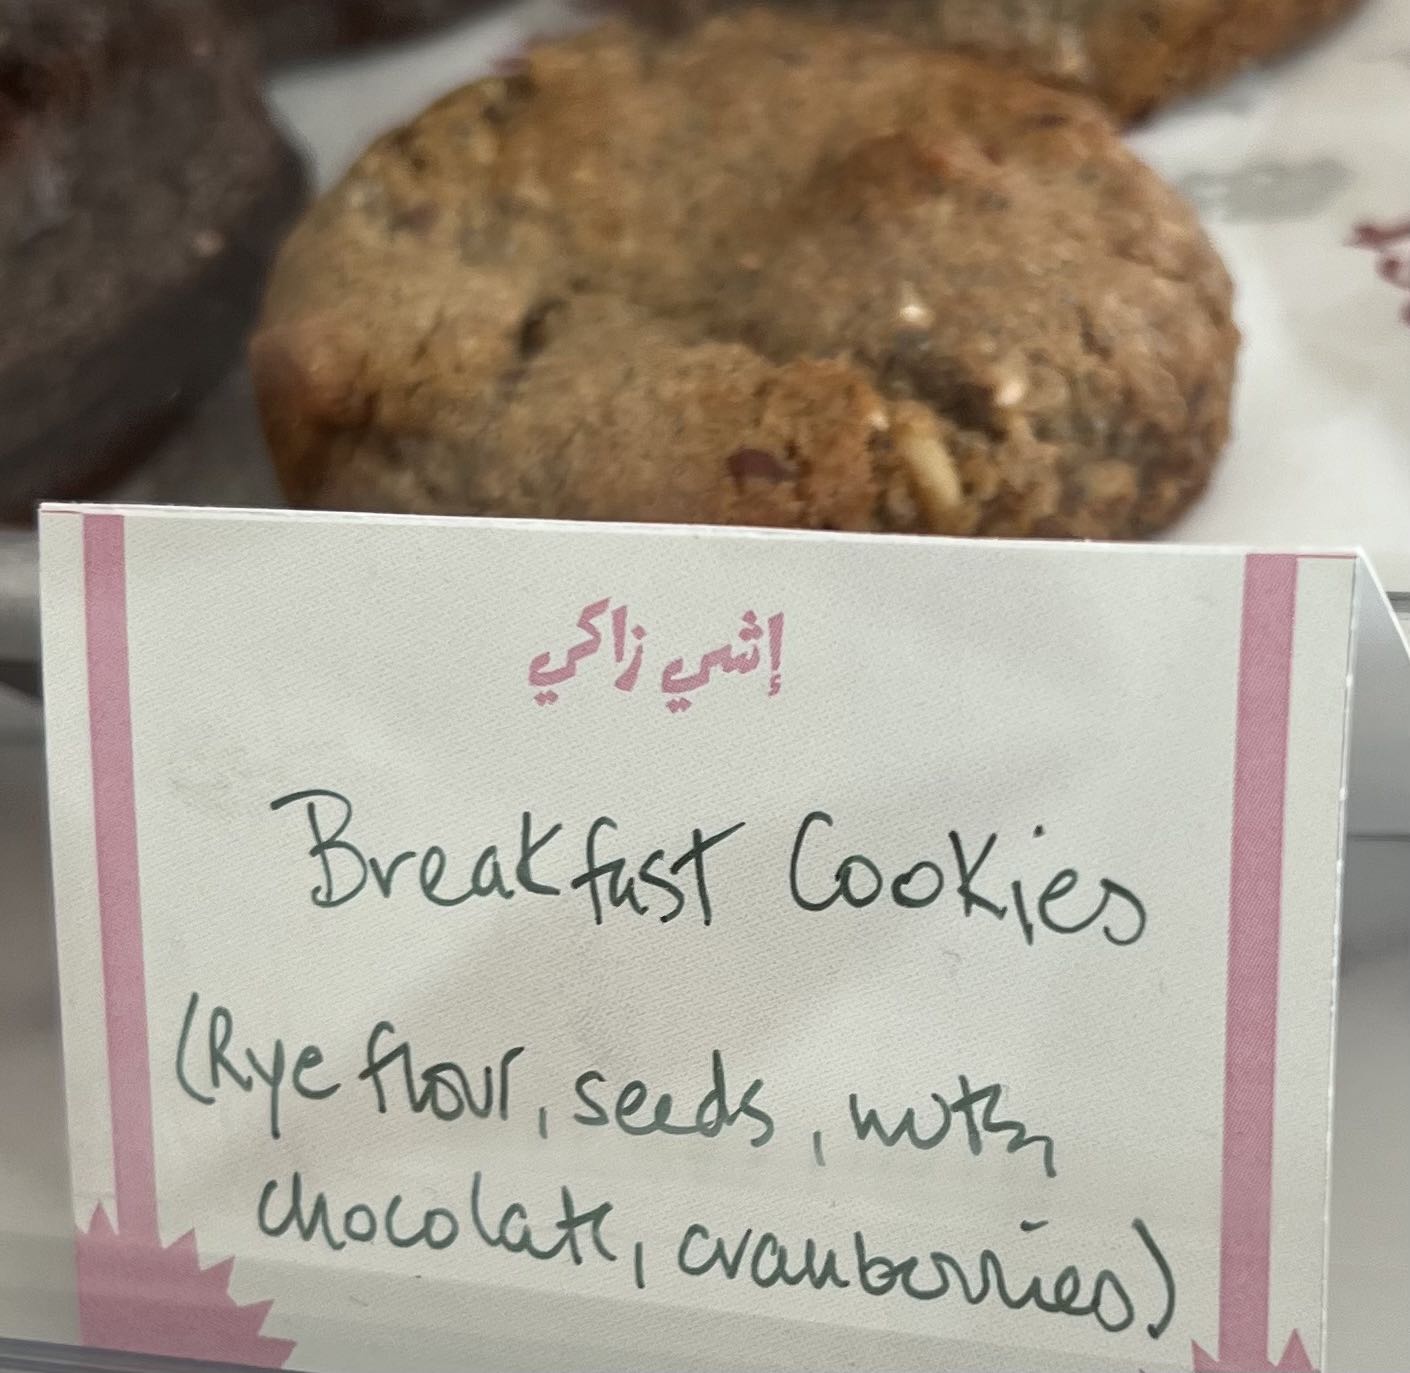 إشي زاكي
Breakfast Cookies
(Rye flour, seeds, nuts,
chocolate, cranberries)